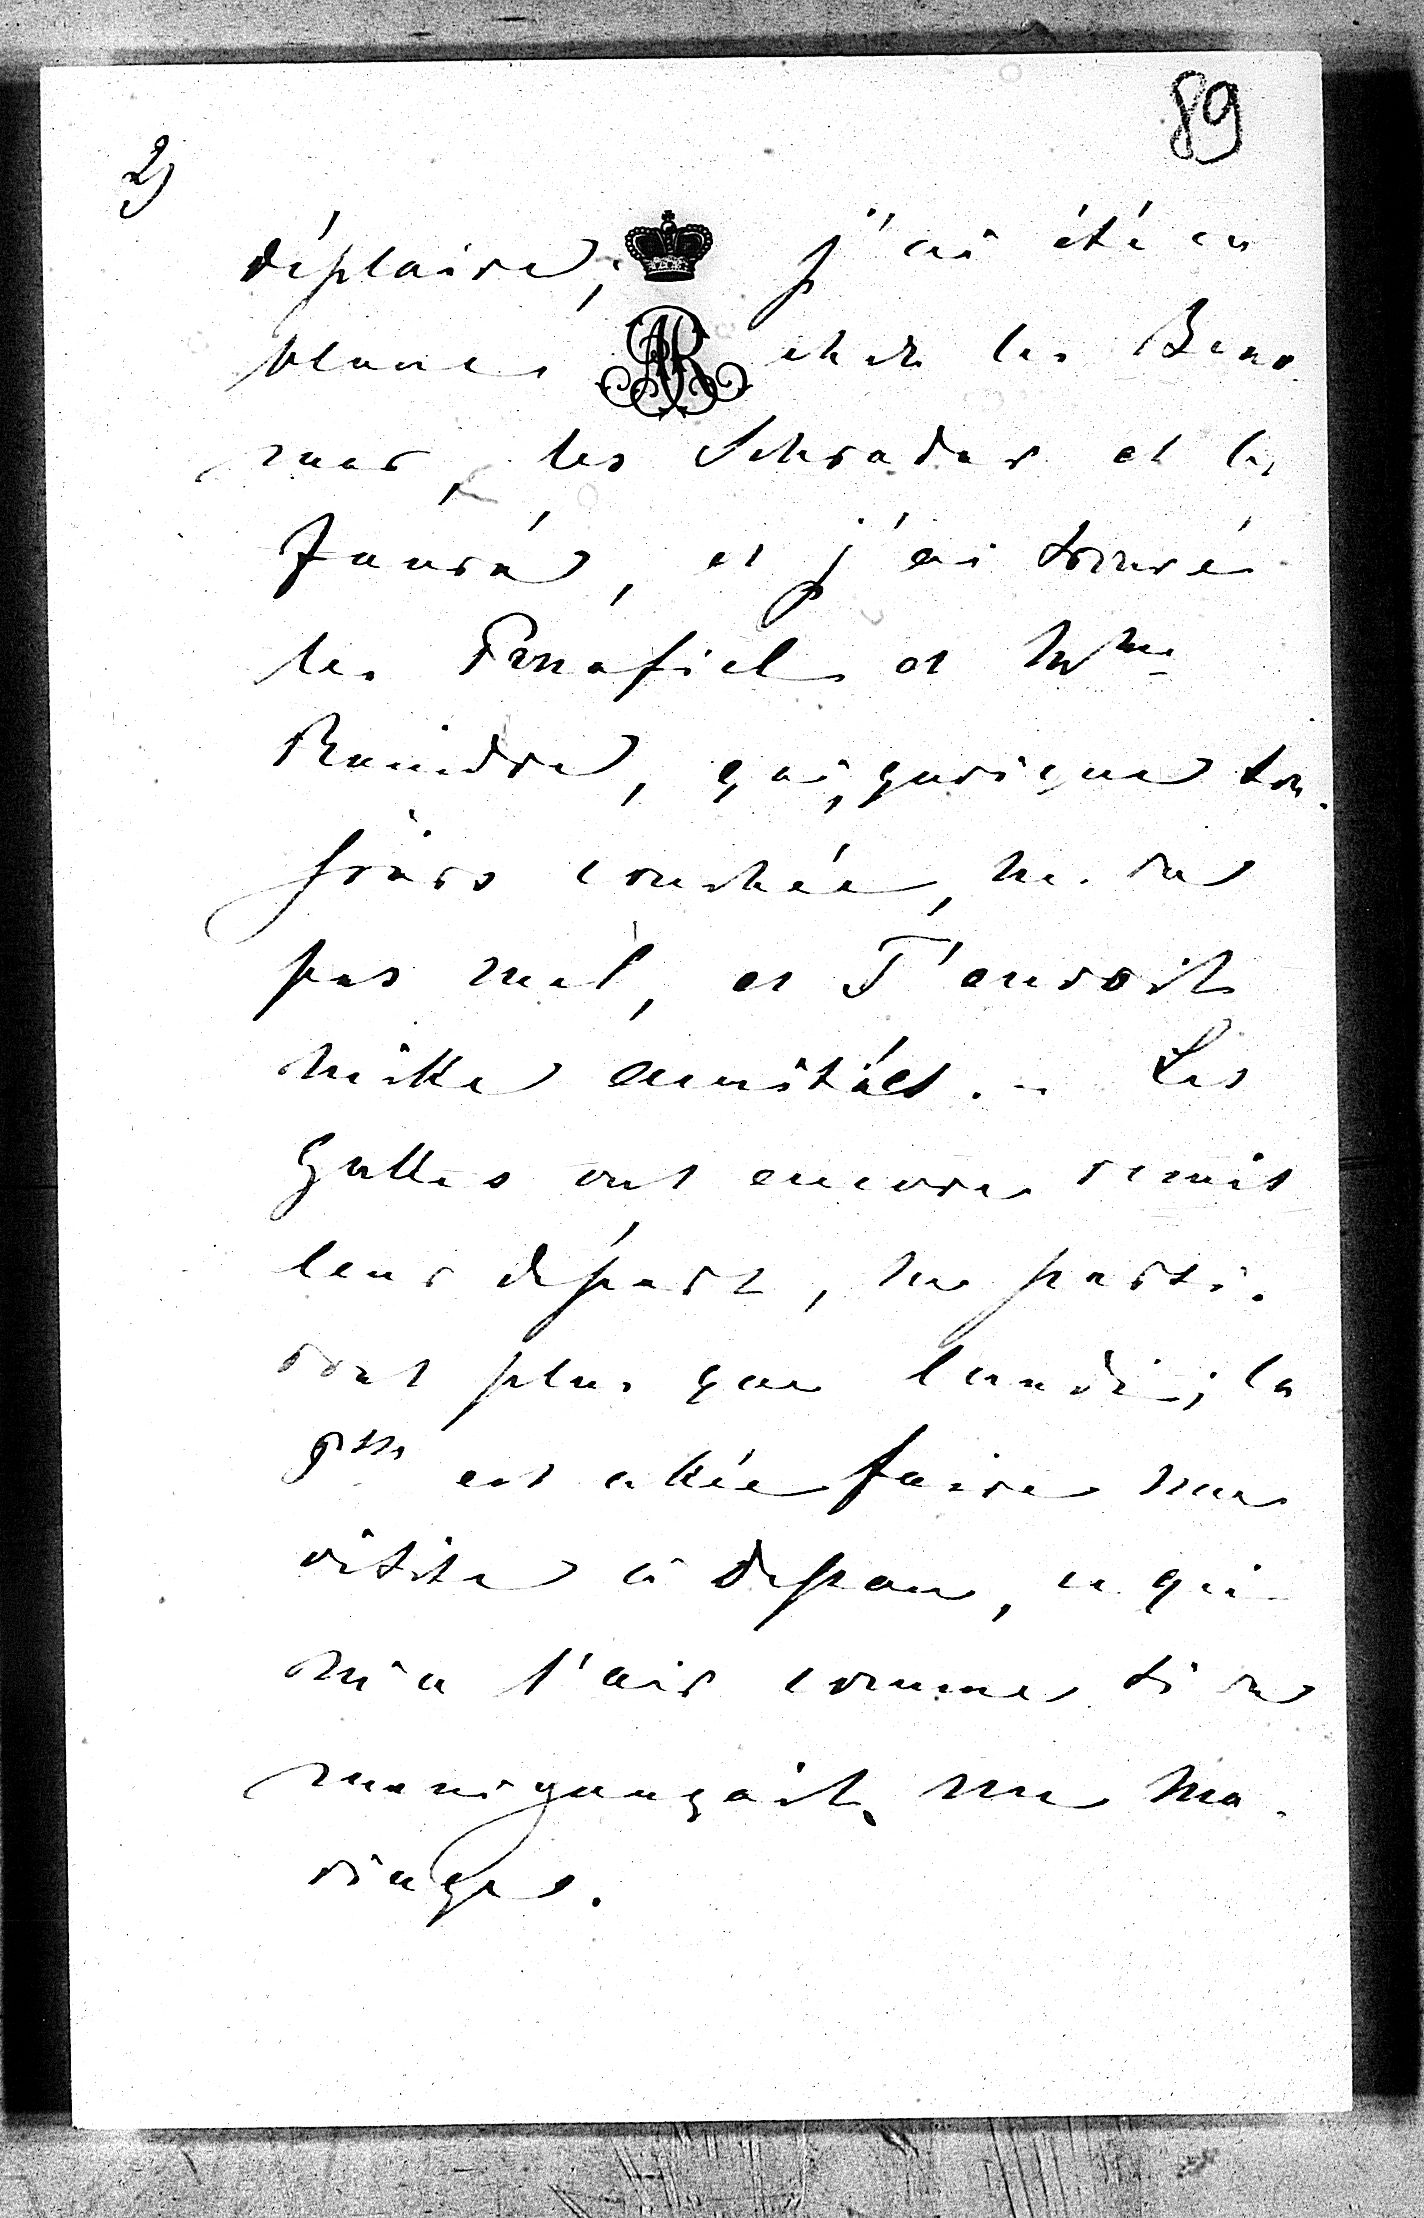 89
2)
déplaire; j'ai été en
chez les Beau
mar, les Schrader et les
et j'ai trouvé
les Penafiel et Mme
Reindre, qui, quoique tou-
jours couchée, ne va
pas mal, et T'envoit
mille amitiés. - Les
Galles ont encore remis
leur départ, ne parti-
ront plus que lundi; la
Psse est allée faire une
visite à Dessau, ce qui
m'a l'air comme si on
manigançait un ma-
riages.